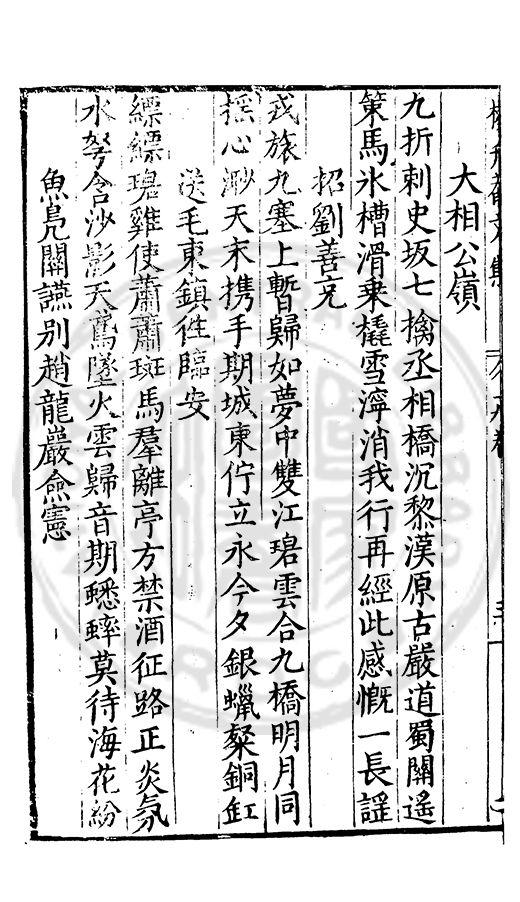 大相公嶺
九折刺史坂七擒丞相橋沉黎漢原古嚴道蜀關遙
策馬氷槽滑乗橇雪濘消我行再經此感慨一長謡
招劉善充
戎旅九塞上暫歸如夢中雙江碧雲合九橋明月同
揺心渺天末携手期城東佇立永今夕銀蠟粲銅缸
送毛東鎮徃臨安
縹縹碧雞使蕭蕭斑馬羣離亭方禁酒征路正炎氛
水弩含沙影天鳶墜火雲歸音期蟋蟀莫待海花紛
魚鳧關讌別趙龍巖僉憲